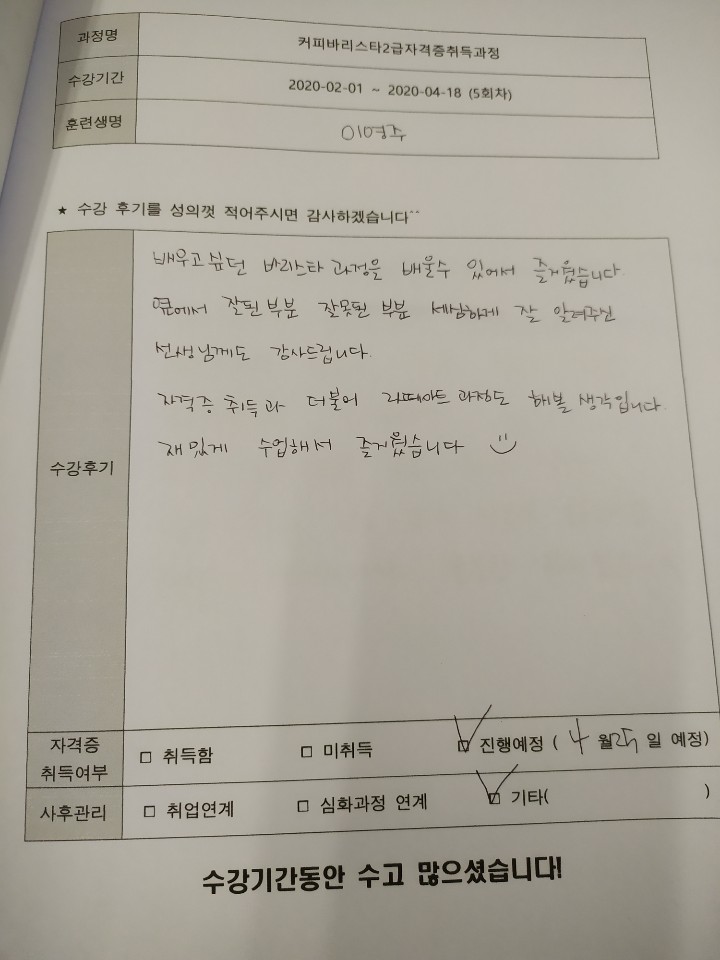 과정명 커피바리스타2급자격증취득과정
수강기간 2020-02-01 ~ 2020-04-18 (5회차)
훈련생명 이영주
★ 수강 후기를 성의껏 적어주시면 감사하겠습니다^^
배우고싶던 바리스타 과정을 배울수 있어서 즐거웠습니다.
옆에서 잘된 부분 잘못된 부분 세심하게 잘 알려주신
선생님께도 감사드립니다.
자격증 취득과 더불어 라떼아트 과정도 해볼 생각입니다.
재밌게 수업해서 즐거웠습니다
수강후기
자격증
취득여부 □ 취득함 □ 미취득 ☑ 진행예정 ( 4 월 25 일 예정)
사후관리 □ 취업연계 □ 심화과정 연계 ☑ 기타( )
수강기간동안 수고 많으셨습니다!